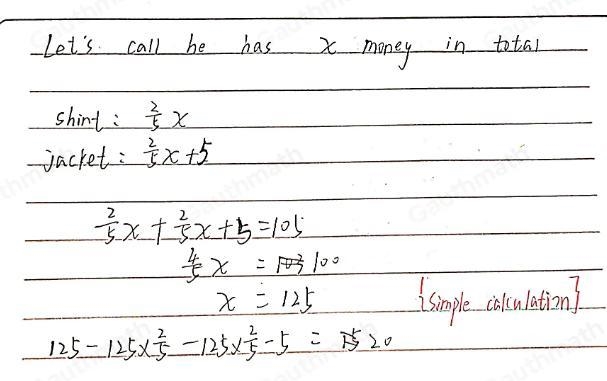 Let's call he has x money in total
shirt: 2/5 x
jacket: 2/5 x + 5
2/5 x + 2/5 x + 5 = 105
4/5 x = 100
x = 125
{simple calculation}
125 - 125 × 2/5 - 125 × 2/5 - 5 = 20